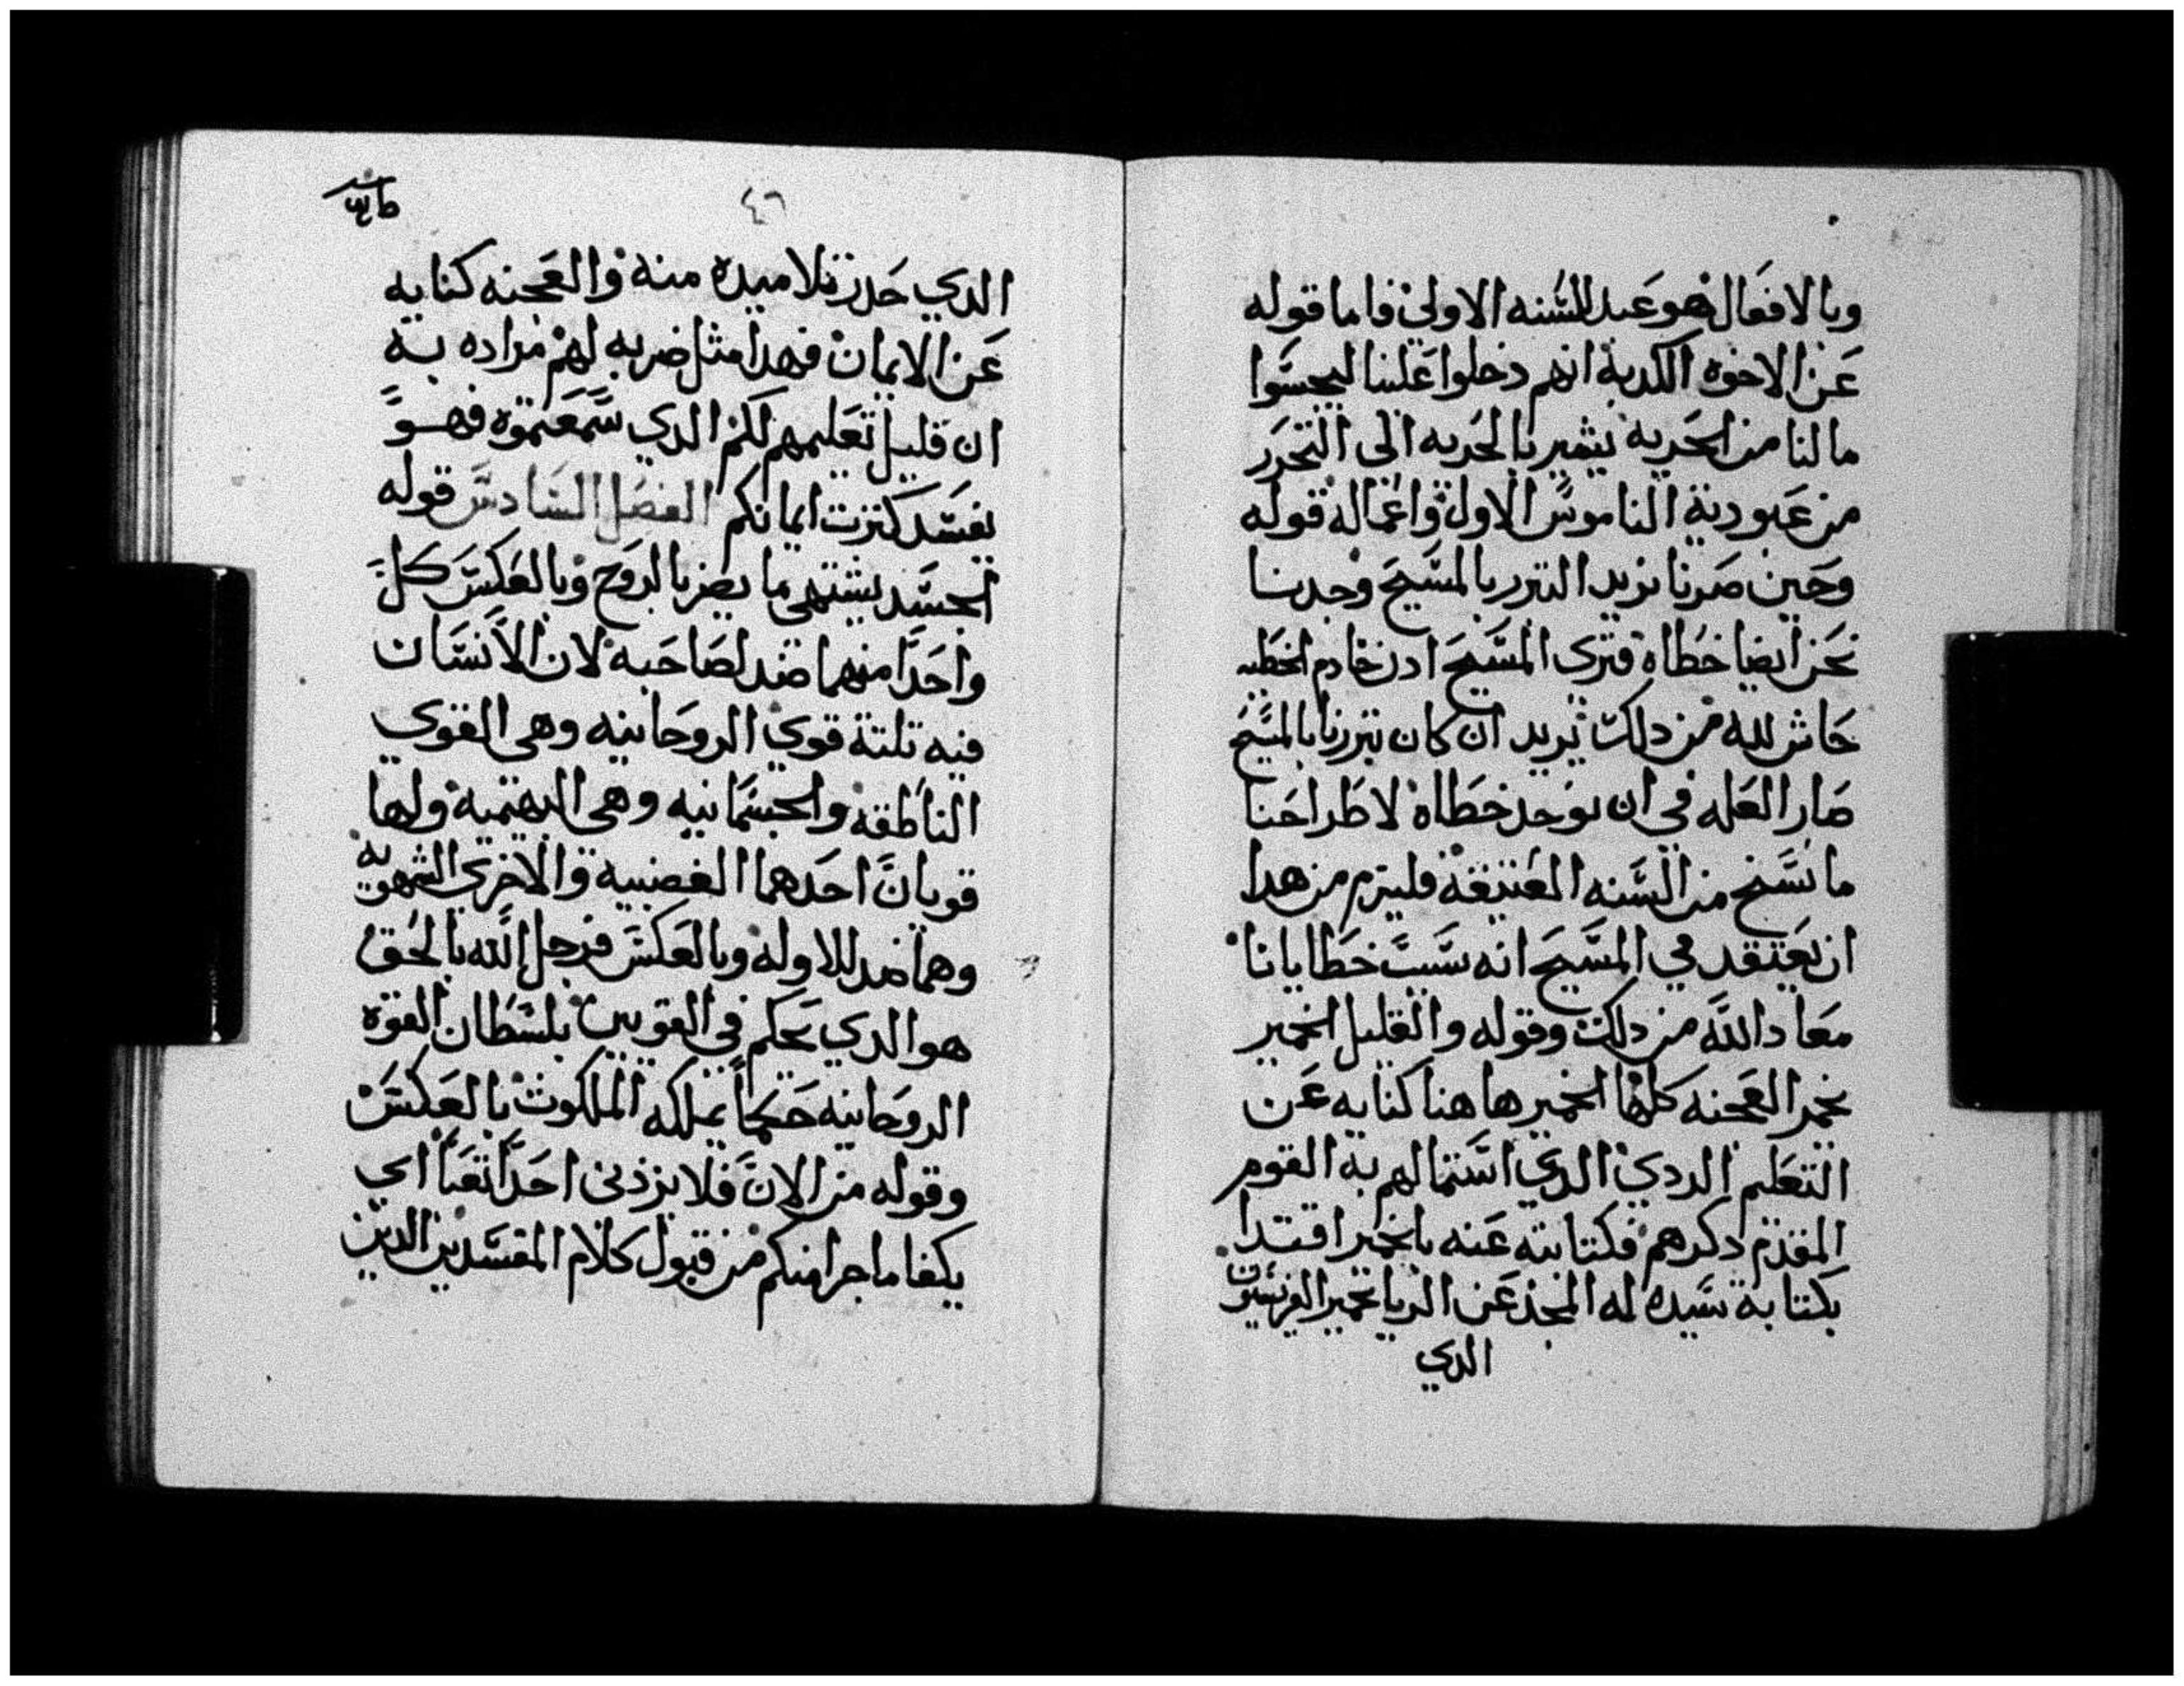 وبالافعال هو عبد للسنه الاولي فاما قوله
عن الاخوه الكدبة انهم دخلوا علينا ليجسوا
ما لنا من الحريه يشير بالحريه الى التحرر
من عبودية الناموس الاول واعماله قوله
وحين صرنا نريد التبرر بالمسيح وجدنا
نحن ايضا خطاه فترى المسيح ادن خادم الخطيه
حاش لله من دلك يريد ان كان تبررنا بالمسيح
صار العله في ان نوجد خطاة لاطراحنا
ما نسخ من السنه العتيقه فليزم من هدا
ان يعتقد في المسيح انه سبب خطايانا
معاد الله من دلك وقوله والقليل الخمير
يخمر العجنه كلها الخمير هاهنا كنايه عن
التعليم الردي الدي استمالهم به القوم
المقدم دكرهم فكتابته عنه بالخمير اقتدا
بكتابة سيده له المجد عن الريا بخمير الفريسيون
الدي
٤٦
الدي حدر تلاميده منه والعجنه كنايه
عن الايمان فهدا مثل ضربه لهم مراده به
ان قليل تعليمهم لكم الدي سمعتموه فهو
يفسد كثرت ايمانكم الفصل السادس قوله
الجسد يشتهي ما يضر بالروح وبالعكس كل
واحدا منهما ضد لصاحبه لان الانسان
فيه تلتة قوي الروحانيه وهى القوي
الناطقه والجسمانيه وهى البهيميه ولها
قوتان احدهما الغضبيه والاخري الشهويه
وهما ضد للاوله وبالعكس فرجل الله بالحق
هو الدي يحكم في القوتين بلسطان القوة
الروحانيه حكما يملكه الملكوت بالعكس
وقوله من الان فلا يزدني احدا تعبا اي
يكفا ما جرا منكم من قبول كلام المفسدين الدين